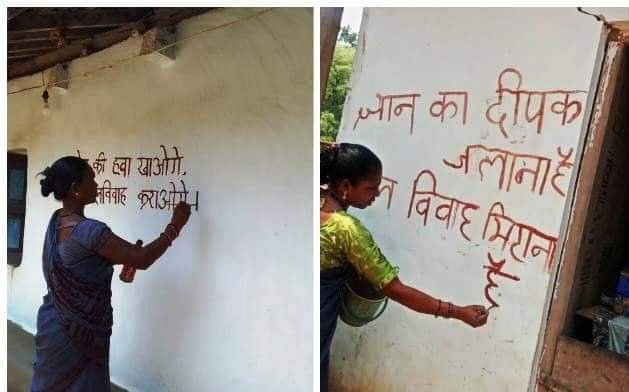 की हवा खाओगे,
लविवाह कराओगे।
ज्ञान का दीपक
जलाना है
विवाह मिटाना
है